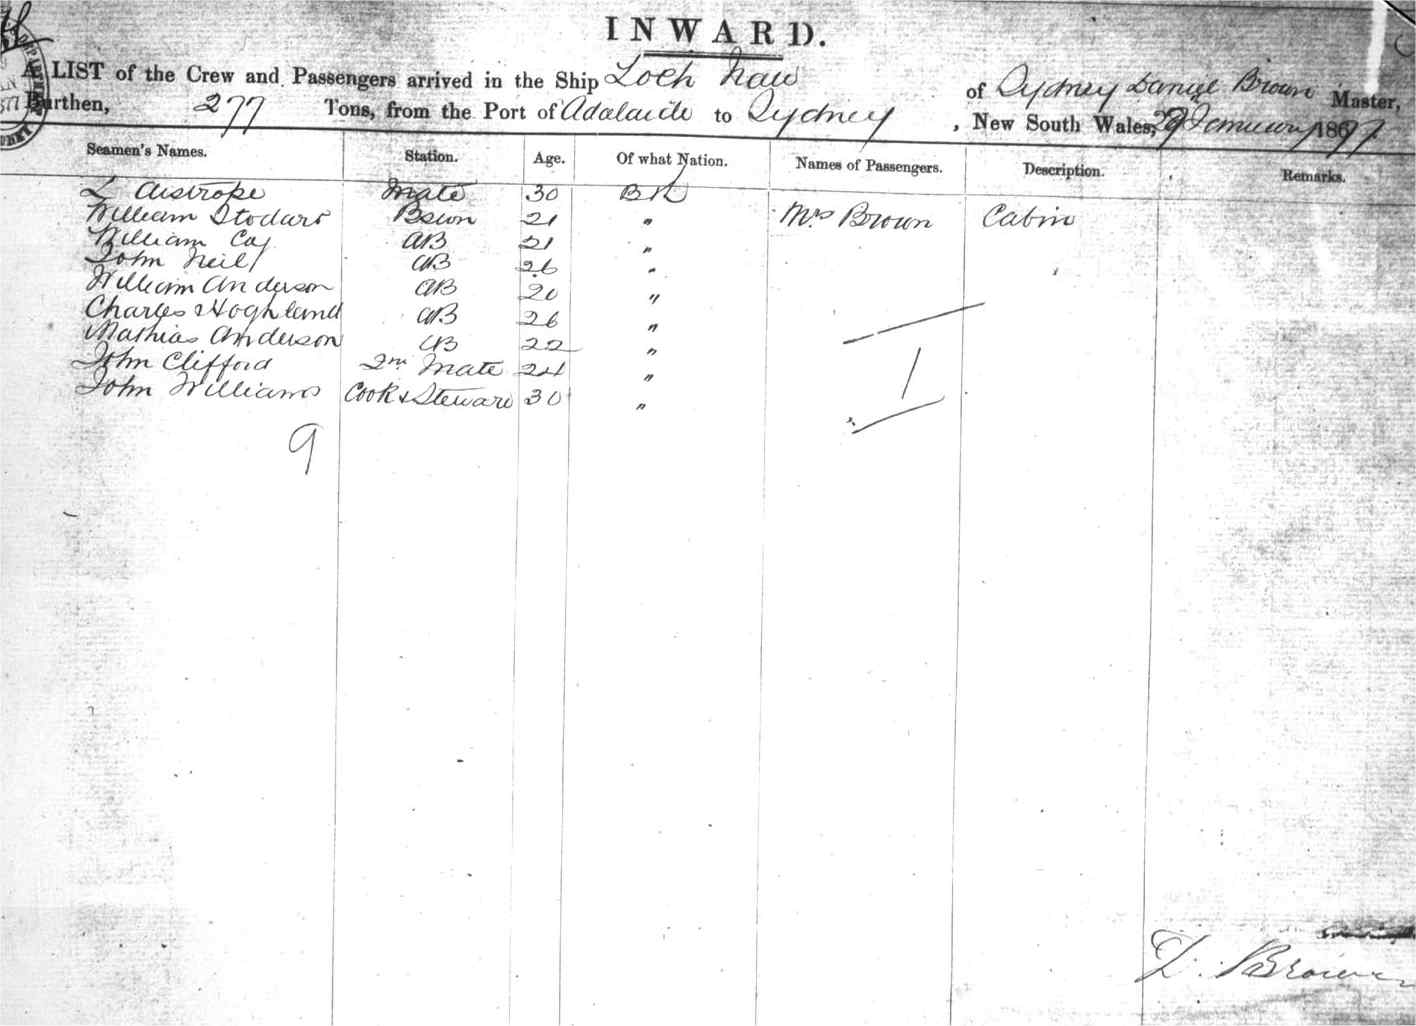 INWARD.
A LIST of the Crew and Passengers arrived in the Ship Loch Naw of Sydney Daniel Brown Master,
Burthen, 277 Tons, from the Port of Adalaide to Sydney, New South Wales, 29 January 1877
Seamen's Names. Station. Age. Of what Nation. Names of Passengers. Description. Remarks.
L Aistrope Mate 30 Brit
William Stodart Bswn 21 " Mrs Brown Cabin
William Cay AB 21 "
John Neil AB 26 "
William Anderson AB 20 "
Charles Hoghland AB 26 "
Mathias Anderson AB 22 "
John Clifford 2nd Mate 24 "
John Williams Cook & Steward 30 "
1
9
D. Brown